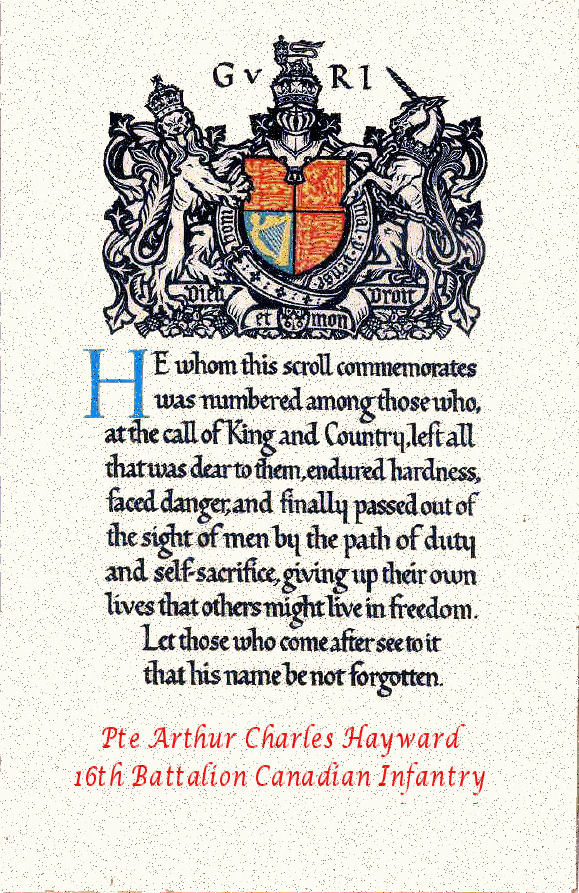 G V R I
Honi soit qui mal y pense
Dieu et mon Droit
HE whom this scroll commemorates
was numbered among those who,
at the call of King and Country, left all
that was dear to them, endured hardness,
faced danger, and finally passed out of
the sight of men by the path of duty
and self-sacrifice, giving up their own
lives that others might live in freedom.
Let those who come after see to it
that his name be not forgotten.
Pte Arthur Charles Hayward
16th Battalion Canadian Infantry